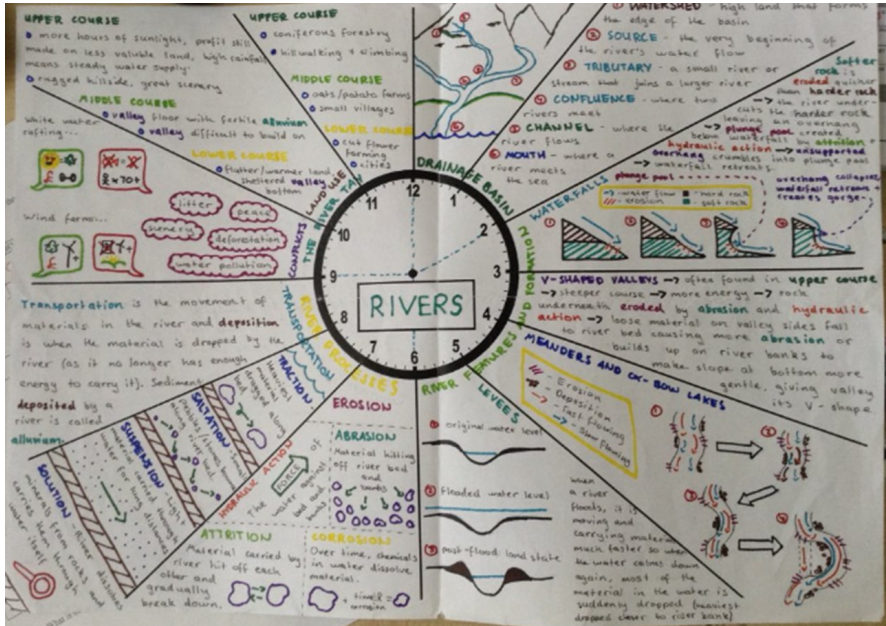 UPPER COURSE
more hours of sunlight, profit still
made on less valuable land, high rainfall
means steady water supply.
rugged hillside, great scenery
MIDDLE COURSE
valley floor with fertile alluvium
valley difficult to build on
White water
rafting...
LOWER COURSE
flatter/warmer land,
sheltered valley
bottom
Wind farms...
litter
peace
scenery
deforestation
water pollution
CONFLICTS
UPPER COURSE
coniferous forestry
hillwalking + climbing
MIDDLE COURSE
oats/potato farms
small villages
LOWER COURSE
cut flower
farming
cities
LAND USE
THE RIVER TAY
DRAINAGE BASIN
① WATERSHED - high land that forms
the edge of the basin
② SOURCE - the very beginning of
the river's water flow
③ TRIBUTARY - a small river or
stream that joins a larger river
④ CONFLUENCE - where two
rivers meet
⑤ CHANNEL - where the
river flows
⑥ MOUTH - where a
river meets
the sea
WATERFALLS
Softer
rock is
eroded quicker
than harder rock
→ the river under-
cuts the harder rock
leaving an overhang
→ plunge pool created
below waterfall by abrasion +
hydraulic action → unsupported
overhang crumbles into plunge pool
→ waterfall retreats
plunge pool
overhang collapses,
waterfall retreats +
creates gorge
→ - water flow
- hard rock
- erosion
- soft rock
RIVERS
12
1
2
3
4
5
6
7
8
9
10
11
RIVER FEATURES AND FORMATION
V-SHAPED VALLEYS → often found in upper course
→ steeper course → more energy → rock
underneath eroded by abrasion and hydraulic
action → loose material on valley sides fall
to river bed causing more abrasion or
builds up on river banks to
make slope at bottom more
gentle, giving valley
its V-shape
MEANDERS AND OX-BOW LAKES
- Erosion
- Deposition
- fast flowing
- slow flowing
LEVEES
① original water level
② flooded water level
③ post-flood land state
When
a river
floods, it is
moving and
carrying material
much faster so when
the water calms down
again, most of the
material in the water is
suddenly dropped (heaviest
dropped closer to river bank)
RIVER PROCESSES
EROSION
ABRASION
Material hitting
off river bed
and banks
HYDRAULIC ACTION
The FORCE of
water against
bed and
banks
ATTRITION
Material carried by
river hit off each
other and
gradually
break down.
CORROSION
Over time, chemicals
in water dissolve
material.
TRANSPORTATION
Transportation is the movement of
materials in the river and deposition
is when the material is dropped by the
river (as it no longer has enough
energy to carry it). Sediment
deposited by a
river is called
alluvium.
TRACTION
Heaviest
material
dragged along
bed
SALTATION
SUSPENSION
SOLUTION - River dissolves
minerals from rocks and
carries them through
water itself